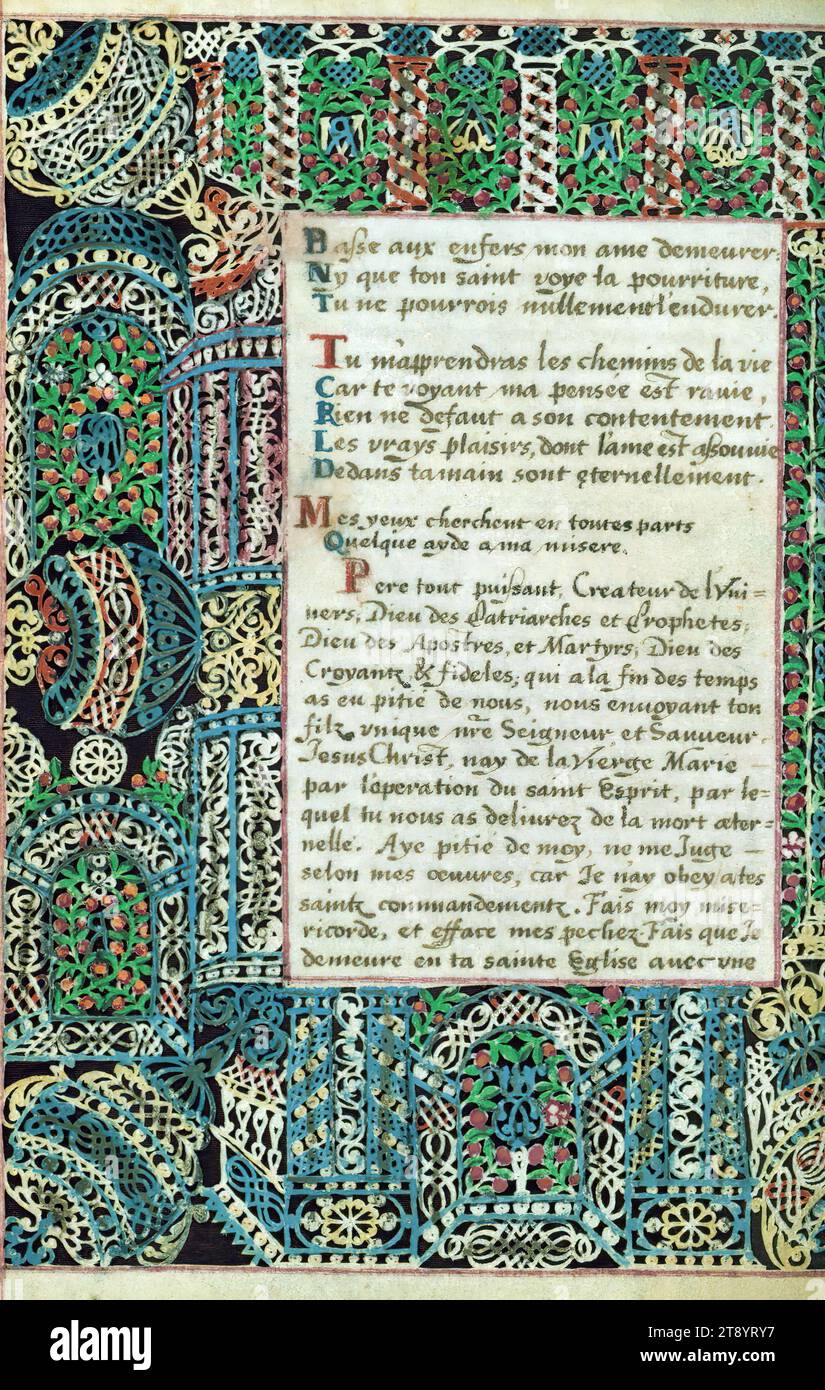 Basse aux enfers mon ame demeurer:
Ny que ton saint voye la pourriture,
Tu ne pourrois nullement l'endurer.
Tu m'apprendras les chemins de la vie
Car te voyant ma pensee est ravie,
Rien ne defaut a son contentement.
Les vrays plaisirs, dont l'ame est assouvie
Dedans ta main sont ęternellement.
Mes yeux cherchent en toutes parts
Quelque ayde a ma misere.
Pere tout puissant, Createur de l'Vni=
uers, Dieu des Patriarches et Prophetes,
Dieu des Apostres, et Martyrs, Dieu des
Croyantz & fideles, qui a la fin des temps
as eu pitie de nous, nous enuoyant ton
filz vnique nr̃e Seigneur et Sauueur
Jesus Christ, nay de la Vierge Marie
par l'operation du saint Esprit, par le=
quel tu nous as deliurez de la mort æter=
nelle. Aye pitie de moy, ne me Juge
selon mes œuures, car Je nay obey a tes
saintz commandementz. Fais moy mise=
ricorde, et efface mes pechez. Fais que Je
demeure en ta sainte Eglise auec vne
alamy
Image ID: 2T8YRY7
www.alamy.com